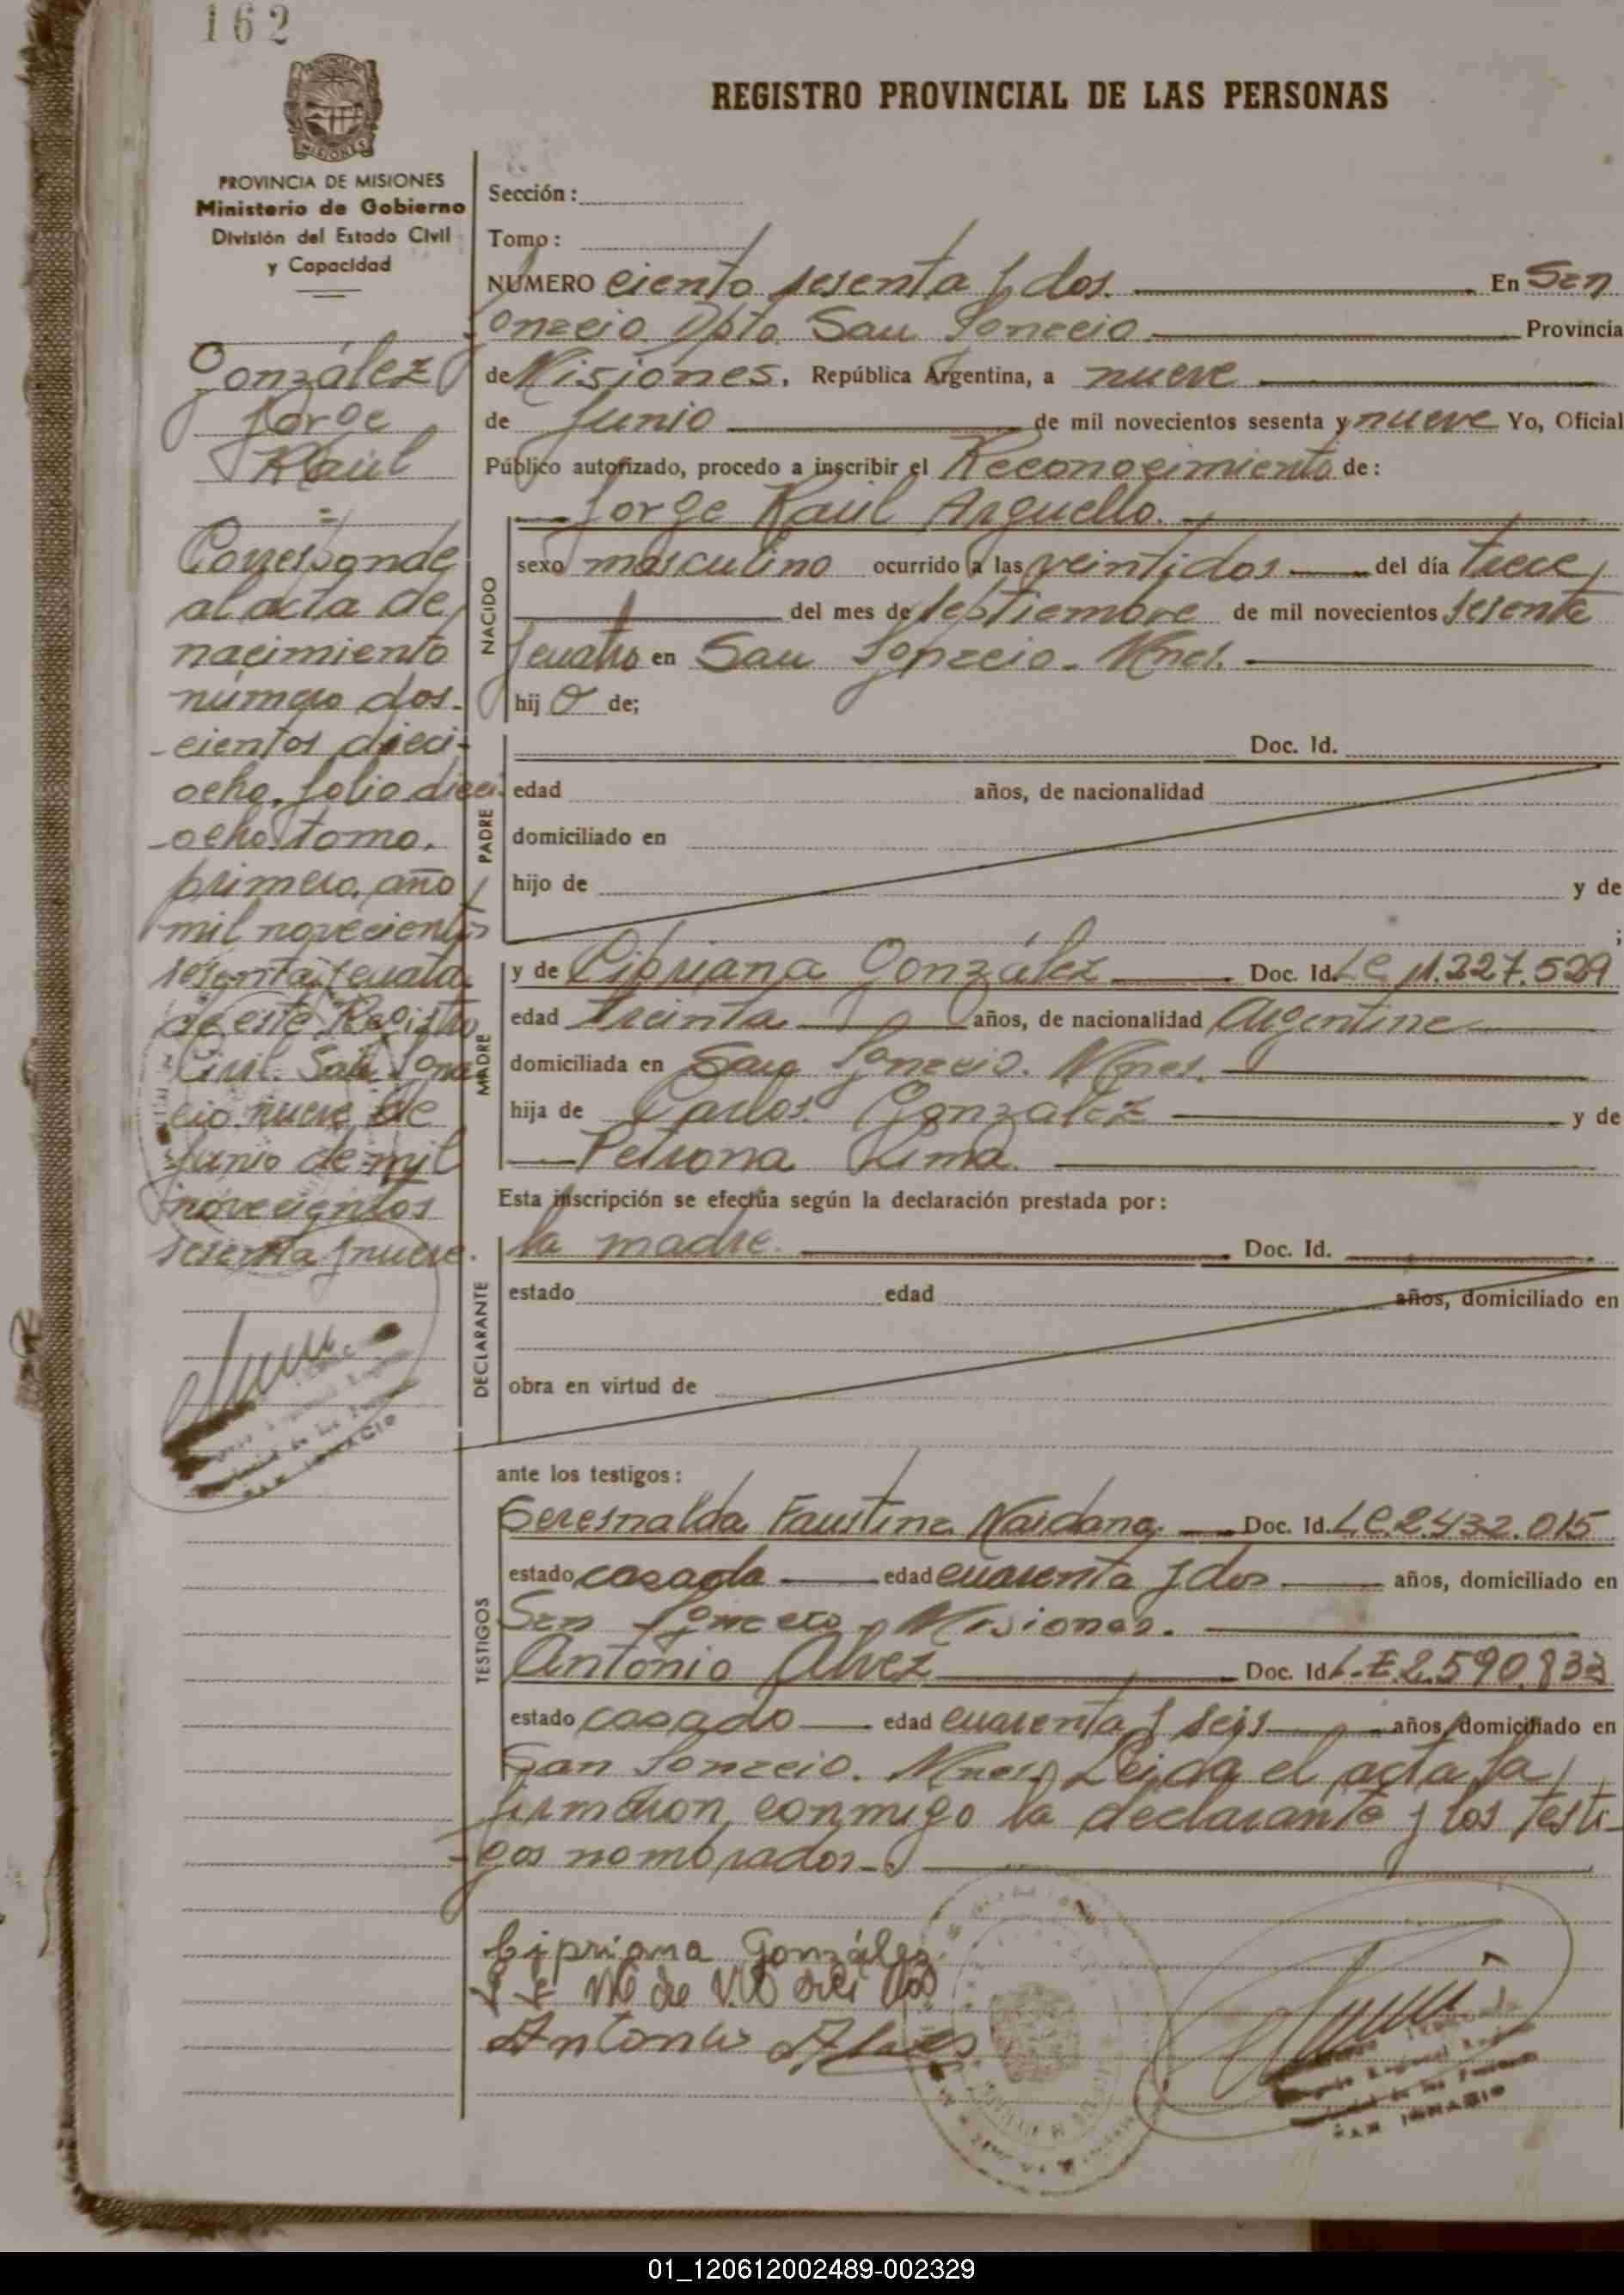 162
MISIONES
PROVINCIA DE MISIONES
Ministerio de Gobierno
División del Estado Civil
y Capacidad
González
Jorge
Raúl
Corresponde
al acta de
nacimiento
número dos-
cientos dieci-
ocho, folio dieci-
ocho tomo,
primero, año
mil novecientos
sesenta y cuatro
de este Registro
Civil. San Igna-
cio nueve de
Junio de mil
novecientos
sesenta y nueve.
SAN IGNACIO
REGISTRO PROVINCIAL DE LAS PERSONAS
Sección:
Tomo:
NUMERO ciento sesenta y dos. En San
Ignacio Dpto. San Ignacio Provincia
de Misiones. República Argentina, a nueve
de Junio de mil novecientos sesenta y nueve Yo, Oficial
Público autorizado, procedo a inscribir el Reconocimiento de:
NACIDO
Jorge Raúl Arguello.
sexo masculino ocurrido a las veintidos del día trece
del mes de septiembre de mil novecientos sesenta
y cuatro en San Ignacio. Mnes.
hij o de;
PADRE
Doc. Id.
edad años, de nacionalidad
domiciliado en
hijo de y de
;
MADRE
y de Cipriana González Doc. Id. LC 11.327.529
edad treinta años, de nacionalidad Argentina
domiciliada en San Ignacio. Mnes.
hija de Carlos González y de
Petrona Lima.
Esta inscripción se efectúa según la declaración prestada por:
DECLARANTE
la madre. Doc. Id.
estado edad años, domiciliado en
obra en virtud de
ante los testigos:
TESTIGOS
Faustina Doc. Id. LC 2.432.015
estado casada edad cuarenta y dos años, domiciliado en
San Ignacio, Misiones.
Antonio Alvez Doc. Id. L.E 2.590.833
estado casado edad cuarenta y seis años, domiciliado en
San Ignacio. Mnes. Leida el acta la
firmaron conmigo la declarante y los testi-
gos nombrados.
Cipriana González
Antonio Alves
SAN IGNACIO
01_120612002489-002329